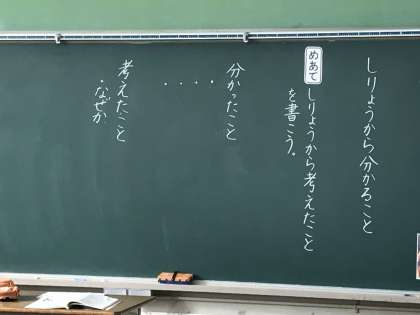 しりょうから分かること
めあて
しりょうから考えたこと
を書こう。
分かったこと
・・・・
考えたこと
・なぜか